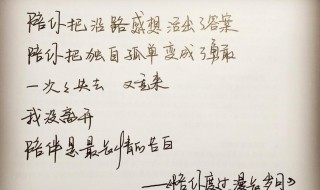 陪你把沿路感想活出了答案
陪你把独自孤单变成了勇敢
一次次失去 又重来
我没离开
陪伴是最长情的告白
——《陪你度过漫长岁月》